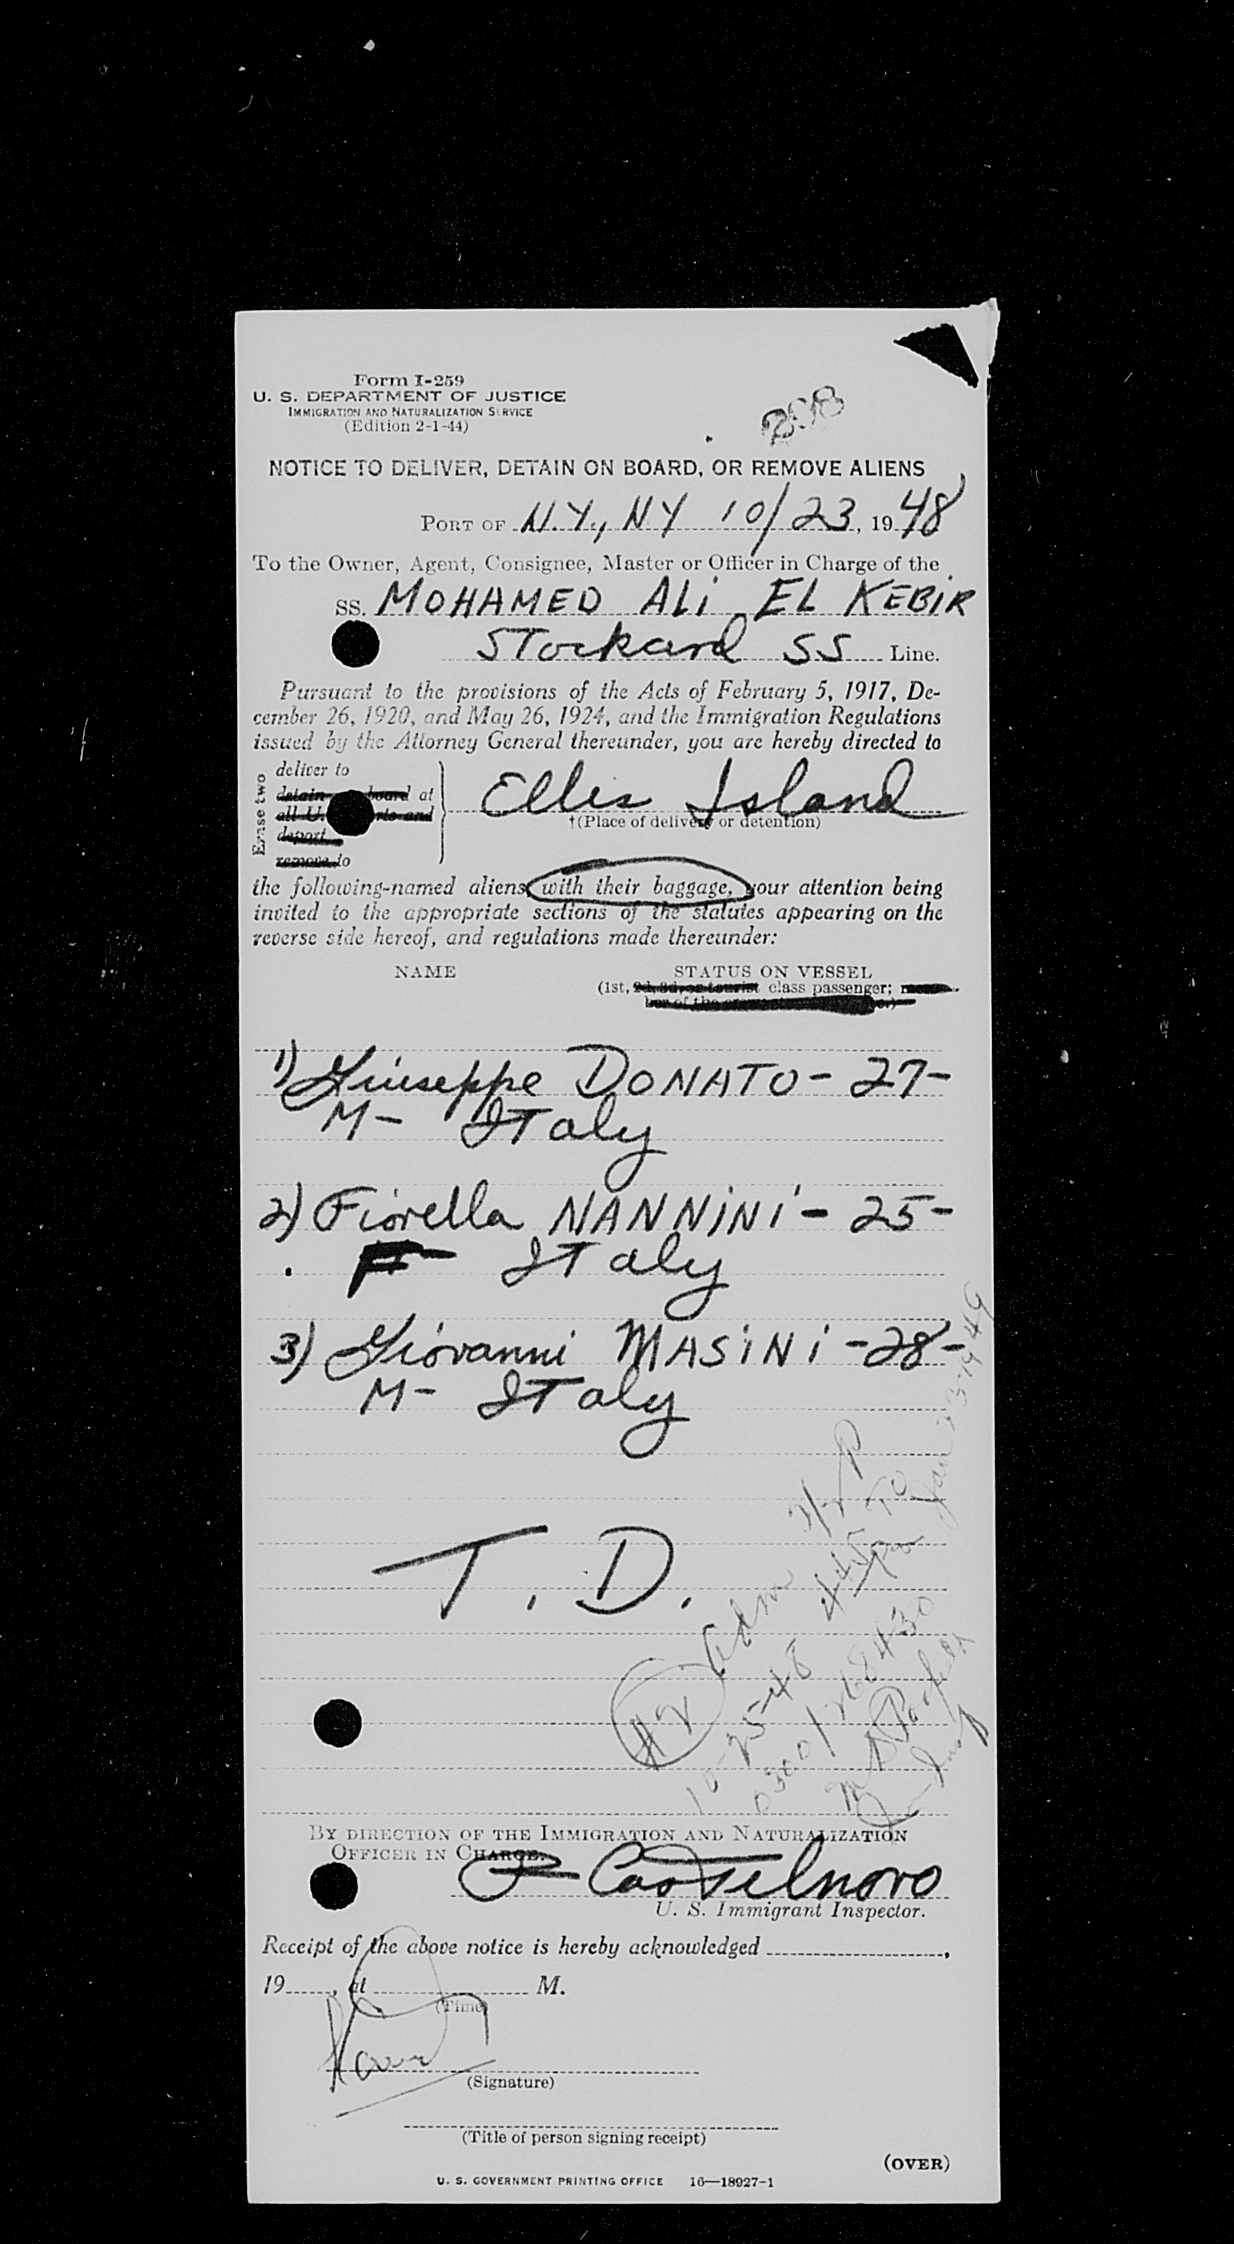 Form I-259
U. S. DEPARTMENT OF JUSTICE
IMMIGRATION AND NATURALIZATION SERVICE
(Edition 2-1-44)
NOTICE TO DELIVER, DETAIN ON BOARD, OR REMOVE ALIENS
PORT OF N.Y., NY 10/23, 1948
To the Owner, Agent, Consignee, Master or Officer in Charge of the
SS. MOHAMED ALi EL KEBiR
STockard SS Line.
Pursuant to the provisions of the Acts of February 5, 1917, De-
cember 26, 1920, and May 26, 1924, and the Immigration Regulations
issued by the Attorney General thereunder, you are hereby directed to
Erase two
deliver to
detain board at
all U. and
deport
remove to
Ellis Island
†(Place of delivery or detention)
the following-named aliens with their baggage, your attention being
invited to the appropriate sections of the statutes appearing on the
reverse side hereof, and regulations made thereunder:
NAME STATUS ON VESSEL
(1st, 2d, 3d, or tourist class passenger; mem-
ber of the
1) Giuseppe DONATO - 27 -
M - ITaly
2) Fiorella NANNiNi - 25 -
F - ITaly
3) Giovanni MASiNi - 28 -
M - ITaly
T. D.
#2 Adm
10-25-48 445 pm
0300/268430
Insp
BY DIRECTION OF THE IMMIGRATION AND NATURALIZATION
OFFICER IN CHARGE.
P Castelnovo
U. S. Immigrant Inspector.
Receipt of the above notice is hereby acknowledged ,
19 , at M.
(Time)
(Signature)
(Title of person signing receipt)
(OVER)
U. S. GOVERNMENT PRINTING OFFICE 16—18927-1